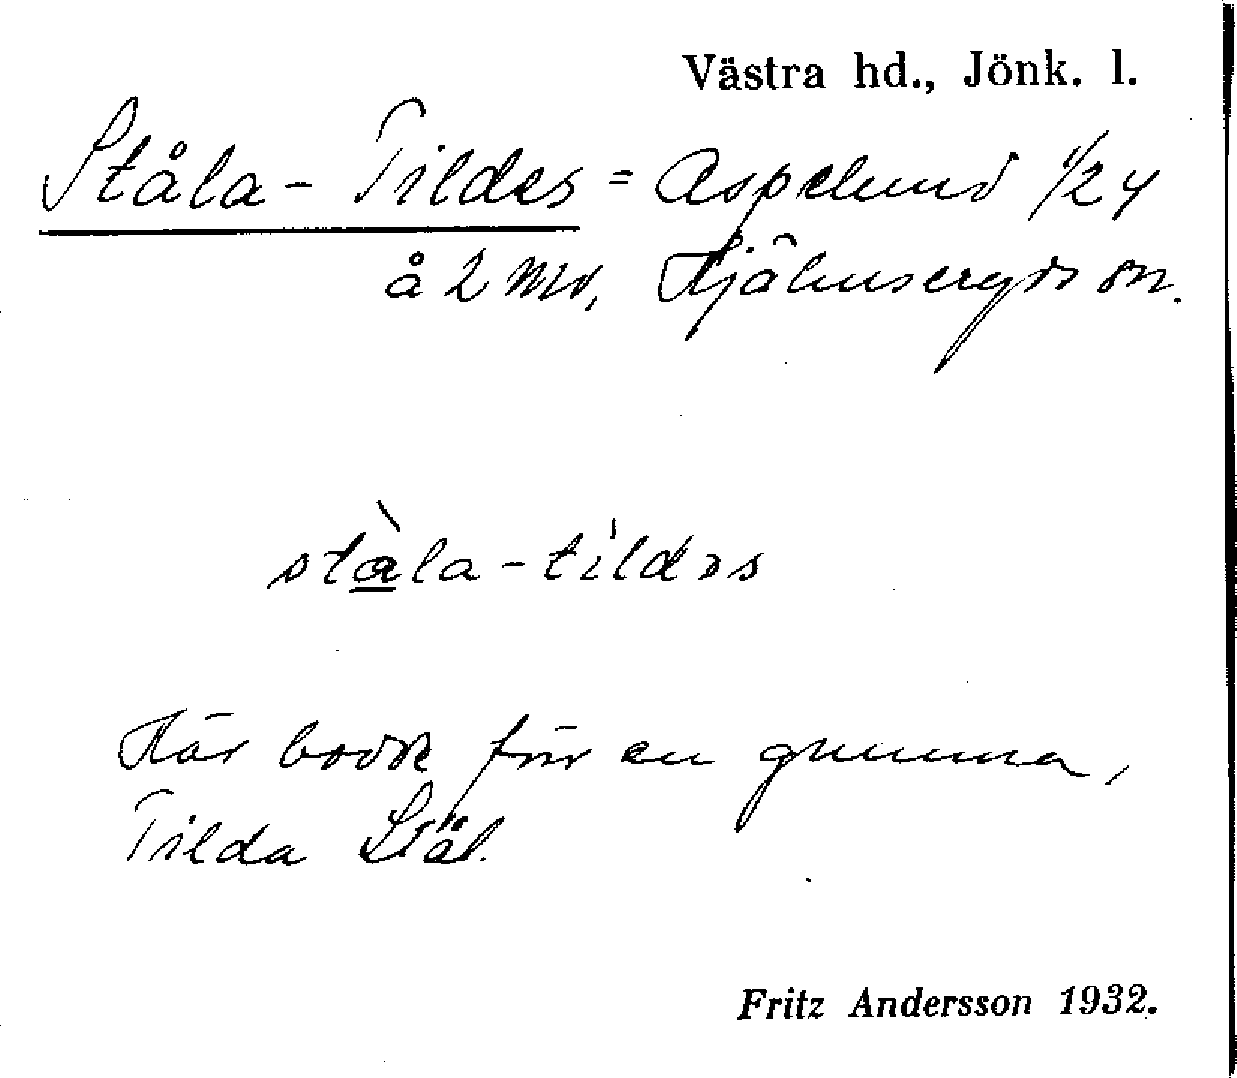 Västra hd., Jönk. l.
Ståla-Tildes = Aspelund 1/24
å 2 Md, Hjälmseryds sn.
stàla-tildəs
Här bodde förr en gumma,
Tilda Stål.
Fritz Andersson 1932.